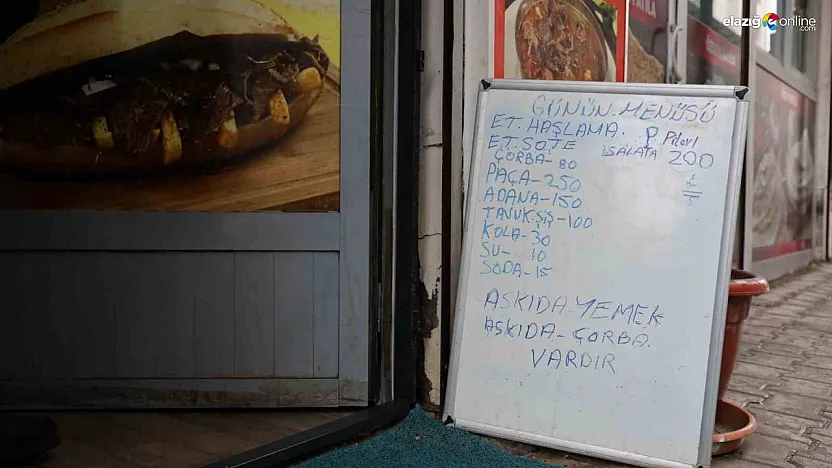 elazığ online
.com
GÜNÜN MENÜSÜ
ET. HAŞLAMA. P. Pilavı
ET. SOTE SALATA 200
ÇORBA- 80
PAÇA-250
ADANA-150
TAVUK.ŞİŞ-100
KOLA- 30
SU- 10
SODA- 15
ASKIDA YEMEK
ASKIDA- ÇORBA.
VARDIR